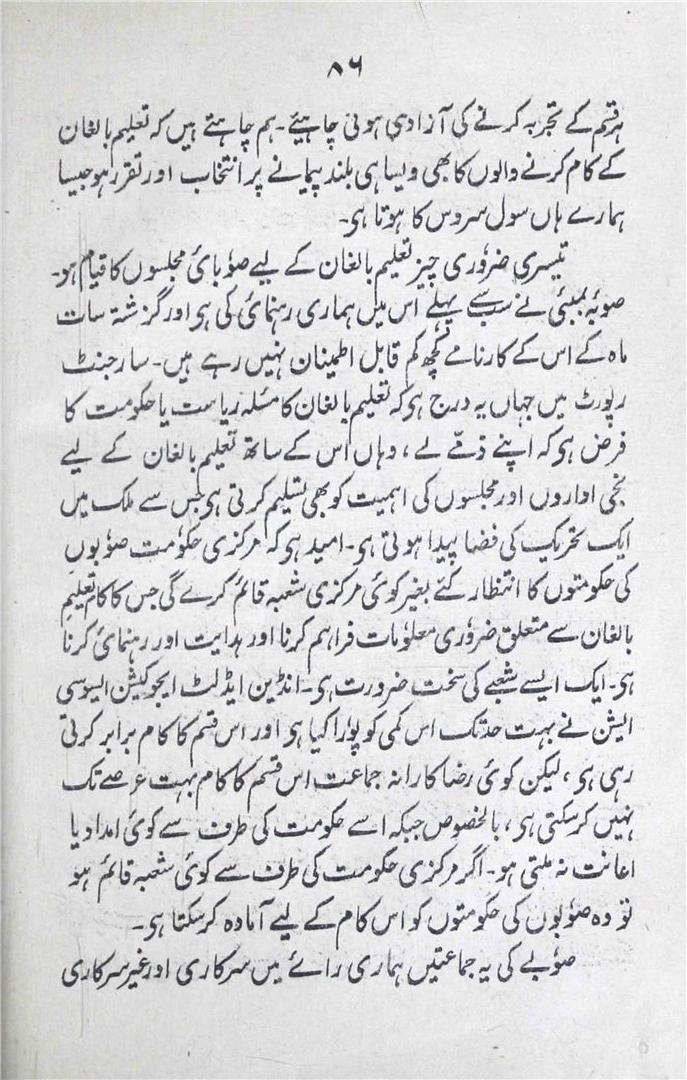 ۸۶
ہر قسم کے تجربہ کرنے کی آزادی ہونی چاہیئے۔ ہم چاہتے ہیں کہ تعلیم بالغان
کے کام کرنے والوں کا بھی ویسا ہی بلند پیمانے پر انتخاب اور تقرر ہو جیسا
ہمارے ہاں سول سروس کا ہوتا ہی۔
تیسری ضروری چیز تعلیم بالغان کے لیے صوٗبائی مجلسوں کا قیام ہو۔
صوبۂ بمبئی نے سب سے پہلے اس میں ہماری رہنمائی کی ہی اور گزشتہ سات
ماہ کے اس کے کارنامے کچھ کم قابل اطمینان نہیں رہے ہیں۔ سارجنٹ
رپورٹ میں جہاں یہ درج ہی کہ تعلیم بالغان کا مسئلہ ریاست یا حکومت کا
فرض ہی کہ اپنے ذمّے لے، وہاں اس کے ساتھ تعلیم بالغان کے لیے
نجی اداروں اور مجلسوں کی اہمیت کو بھی تسلیم کرتی ہی جس سے ملک میں
ایک تحریک کی فضا پیدا ہوتی ہی۔ امید ہی کہ مرکزی حکومت صوٗبوں
کی حکومتوں کا انتظار کئے بغیر کوئی مرکزی شعبہ قائم کرے گی جس کا کام تعلیمِ
بالغان سے متعلق ضروٗری معلوٗمات فراہم کرنا اور ہدایت اور رہنمائی کرنا
ہی۔ ایک ایسے شعبے کی سخت ضرورت ہی۔ انڈین ایڈلٹ ایجوکیشن ایسوسی
ایشن نے بہت حد تک اس کمی کو پوٗرا کیا ہی اور اس قسم کا کام برابر کرتی
رہی ہی، لیکن کوئی رضاکارانہ جماعت اس قسم کا کام بہت عرصے تک
نہیں کر سکتی ہی، بالخصوص جبکہ اسے حکومت کی طرف سے کوئی امداد یا
اعانت نہ ملتی ہو۔ اگر مرکزی حکومت کی طرف سے کوئی شعبہ قائم ہو
تو وہ صوٗبوں کی حکومتوں کو اس کام کے لیے آمادہ کر سکتا ہی۔
صوٗبے کی یہ جماعتیں ہماری رائے میں سرکاری اور غیر سرکاری